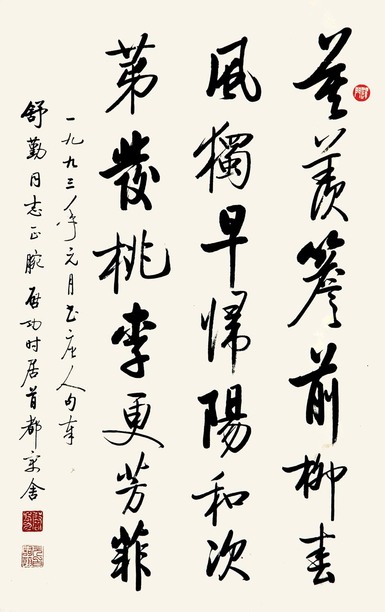 莫羨簷前柳春
風獨早歸陽和次
第發桃李更芳菲
一九九三年元月书唐人句奉
舒勤同志正腕 启功时居首都寓舍